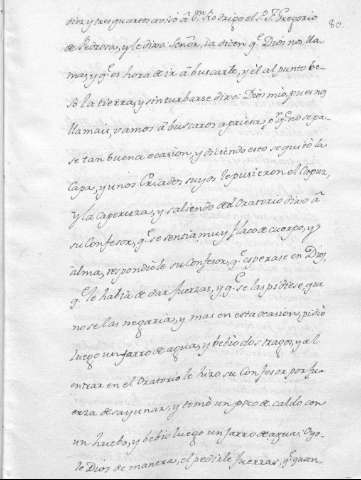 80
diez y tres quartos avisó a Dn. Ro. drigo el P. F. Gregorio
de Pedrosa, y le dixo Señor, ia dicen q. Dios nos lla-
ma, y q. es hora de ir a buscarle, y el al punto be-
só la tierra, y sin turbarse dixo: Dios mio, pues nos
llamais, vamos a buscaros aprisa, q. no se pa-
se tan buena ocasion, y diciendo esto se quitó la
Capa, y unos Criados suyos le pusieron el Capuz,
y la Caperuza, y saliendo del Oratorio dixo a
su Confesor, q. se sentia muy flaco de cuerpo, y
alma, respondiole su Confesor, q. esperase en Dios,
q. le había de dar fuerzas, y q. se las pidiese que
no se las negaria, y mas en esta ocasion, pidió
luego un jarro de agua, y bebió dos tragos, y al
entrar en el Oratorio le hizo su Confesor por fu-
erza desayunar, y tomó un poco de caldo con
un huebo, y bebió luego un jarro de agua. Oyo-
le Dios de manera, el pedirle fuerzas, q. quan-